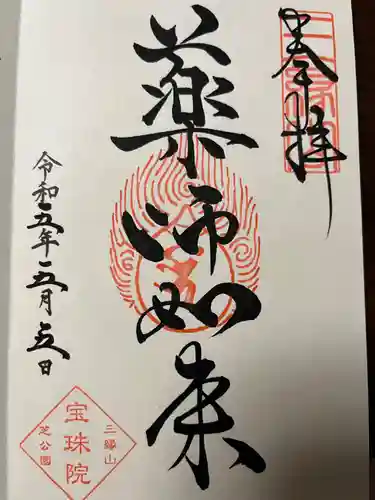 奉拝
薬師如来
令和五年五月五日
三縁山
宝珠院
芝公園